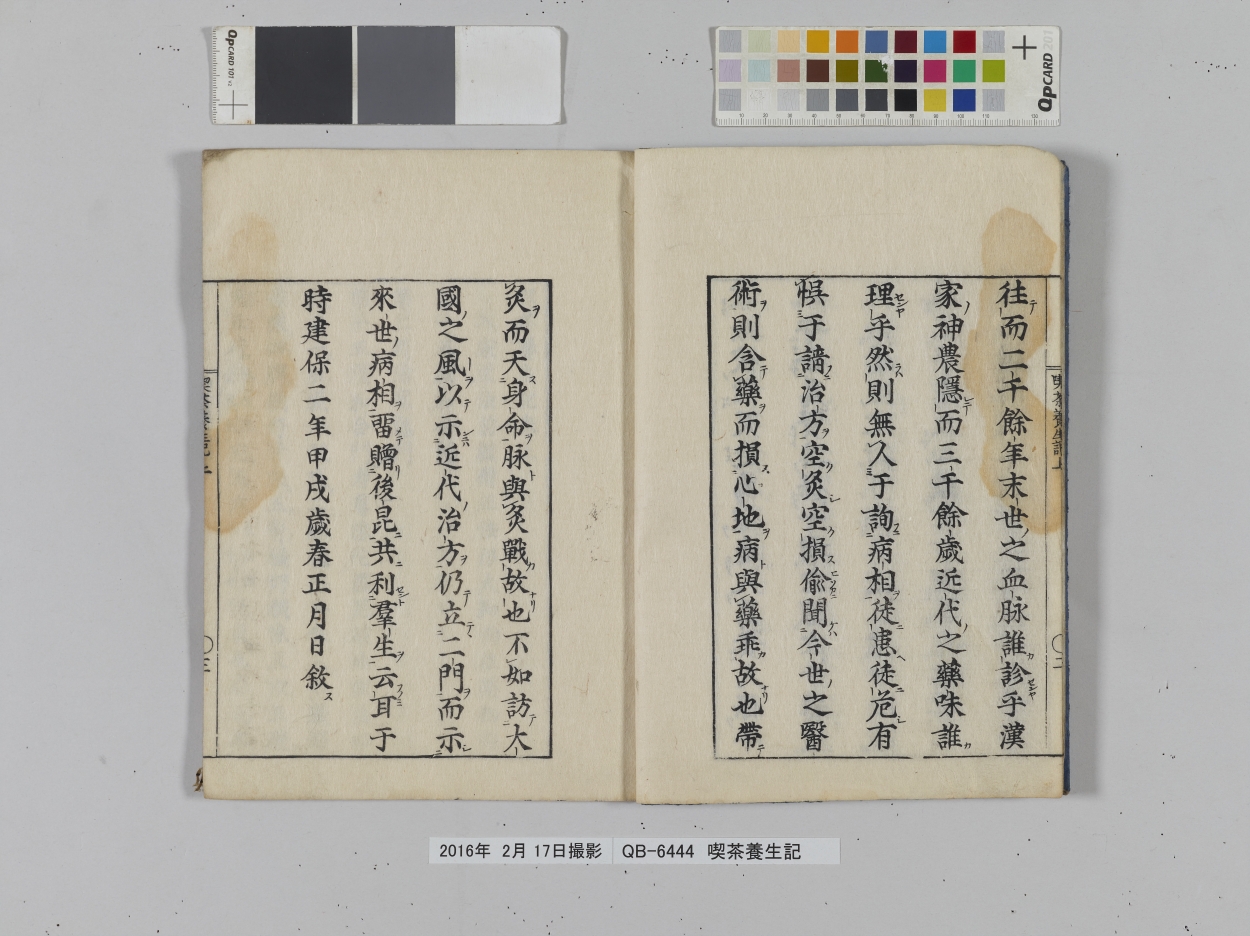 往而二千餘年末世之血脉誰診乎漢
家神農隱而三千餘歲近代之藥味誰
理乎然則無人于詢病相徒患徒危有
悞于請治方空灸空損偷聞今世之醫
術則含藥而損心地病與藥乖故也帶
灸而夭身命脉與灸戰故也不如訪大
國之風以示近代治方仍立二門而示
來世病相畱贈後昆共利羣生云耳于
時建保二年甲戌歲春正月日敘
喫茶養生記上
2016年 2月 17日撮影 QB-6444 喫茶養生記
OpCARD 101
OpCARD 201